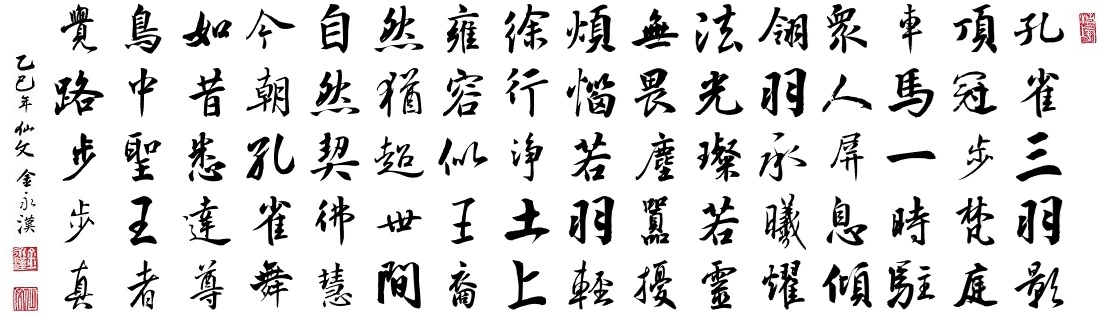 孔雀三羽影
頂冠步梵庭
車馬一時駐
眾人屏息傾
翎羽承曦耀
法光璨若靈
無畏塵囂擾
煩惱若羽輕
徐行淨土上
雍容似王裔
然猶超世間
自然契佛慧
今朝孔雀舞
如昔悉達尊
鳥中聖王者
覺路步步真
乙巳年仙文金永漢